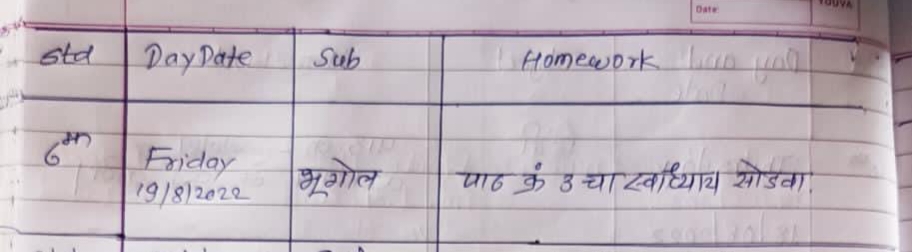 Date:
YOUVA
Std Day Date Sub Homework
6th Friday
19/8/2022 भूगोल पाठ क्रं 3 चा स्वाध्याय सोडवा.